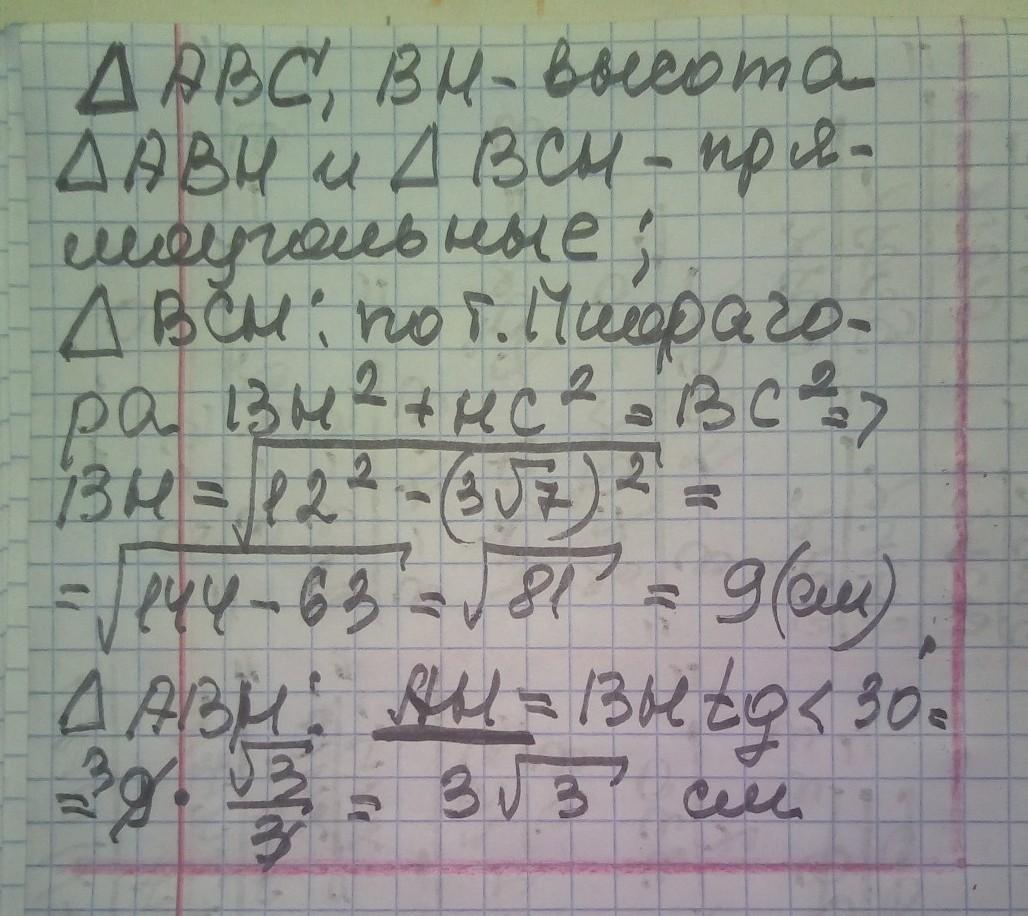 Δ ABC, BH - высота
Δ ABH и Δ BCH - пря-
моугольные;
Δ BCH: по т. Пифаго-
ра BH² + HC² = BC² =>
BH = √(12² - (3√7)²) =
= √(144 - 63) = √81 = 9 (см);
Δ ABH: AH = BH tg < 30 =
= 9 · √3/3 = 3√3 см